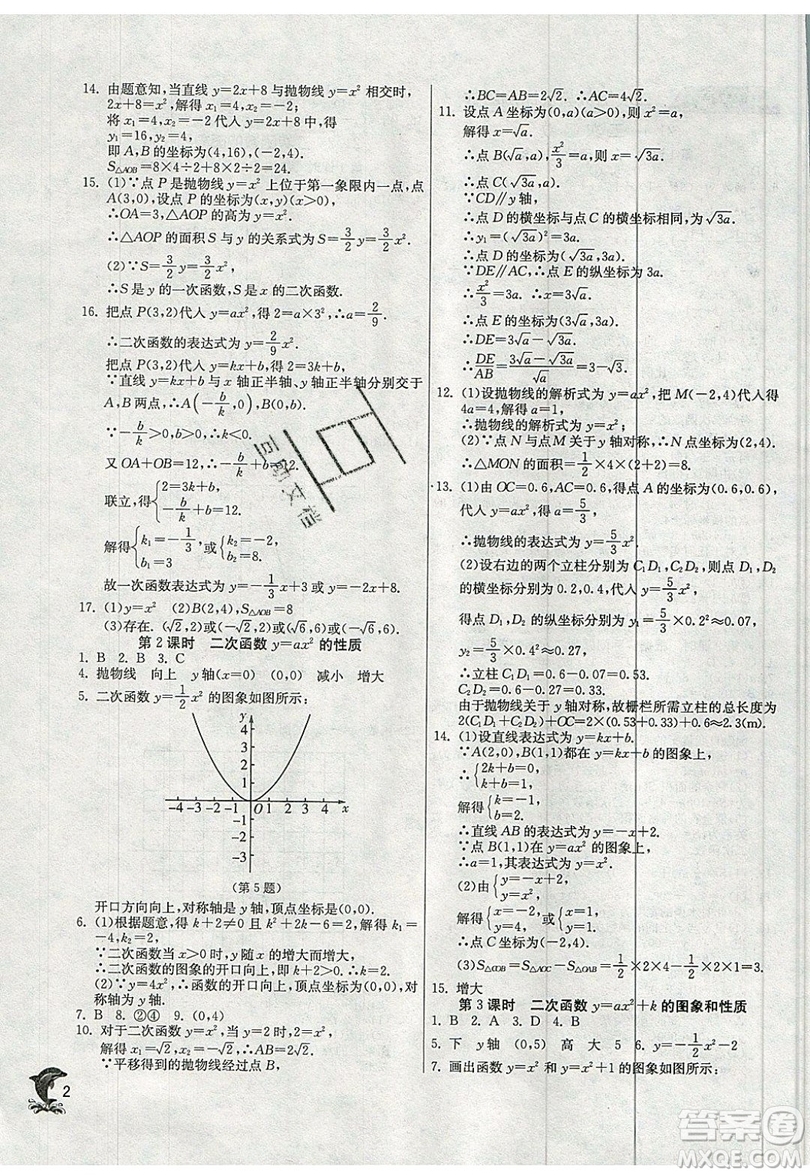 14. 由题意知,当直线 y=2x+8 与抛物线 y=x² 相交时,
2x+8=x²,解得 x₁=4,x₂=-2;
将 x₁=4,x₂=-2 代入 y=2x+8 中,得
y₁=16,y₂=4,
即 A,B 的坐标为(4,16),(-2,4).
S△AOB=8×4÷2+8×2÷2=24.
15. (1)∵点 P 是抛物线 y=x² 上位于第一象限内一点,点
A(3,0),设点 P 的坐标为(x,y)(x>0),
∴OA=3,△AOP 的高为 y=x².
∴△AOP 的面积 S 与 y 的关系式为 S=3/2y=3/2x².
(2)∵S=3/2y=3/2x²,
∴S 是 y 的一次函数,S 是 x 的二次函数.
16. 把点 P(3,2)代入 y=ax²,得 2=a×3²,∴a=2/9.
∴二次函数的表达式为 y=2/9x².
把点 P(3,2)代入 y=kx+b,得 2=3k+b.
∵直线 y=kx+b 与 x 轴正半轴、y 轴正半轴分别交于
A,B 两点,∴A(-b/k,0),B(0,b).
∵-b/k>0,b>0,∴k<0.
又 OA+OB=12,∴-b/k+b=12.
联立,得{2=3k+b, -b/k+b=12.
解得{k₁=-1/3, b₁=3,或{k₂=-2, b₂=8.
故一次函数表达式为 y=-1/3x+3 或 y=-2x+8.
17. (1)y=x² (2)S△AOB=8
(3)存在. (√2,2)或(-√2,2)或(√6,6)或(-√6,6)
第 2 课时 二次函数 y=ax² 的性质
1. B 2. B 3. C
4. 抛物线 向上 y 轴(x=0) (0,0) 减小 增大
5. 二次函数 y=1/2x² 的图象如图所示:
y
4
3
2
1
-4 -3 -2 -1 O 1 2 3 4 x
-1
-2
-3
(第 5 题)
开口方向向上,对称轴为 y 轴,顶点坐标为(0,0).
6. (1)根据题意,得 k+2≠0 且 k²+k-4=2,解得 k₁=
-3,k₂=2.
∵二次函数当 x>0 时,y 随 x 的增大而增大,
∴二次函数的图象的开口向上,即 k+2>0.∴k=2.
(2)由(1)得此二次函数为 y=4x²,∴顶点坐标为(0,0),对
称轴为 y 轴.
7. B 8. ②④ 9. (0,4)
10. 对于二次函数 y=x²,当 y=2 时,2=x²,
解得 x=±√2.∴AB=√2-(-√2)=2√2.
∵平移得到的抛物线经过点 B,
∴BC=AB=2√2. ∴AC=4√2.
11. 设点 A 坐标为(0,a)(a>0),则 x²=a,
解得 x=√a.
∴点 B(√a,a),x²/3=a,则 x=√3a.
∴点 C(√3a,a).
∵CD∥y 轴,
∴点 D 的横坐标与点 C 的横坐标相同,为√3a.
∴y₁=(√3a)²=3a.
∴点 D 的坐标为(√3a,3a).
∵DE∥AC,∴点 E 的纵坐标为 3a.
∴x²/3=3a. ∴x=3√a.
∴点 E 的坐标为(3√a,3a).
∴DE=3√a-√3a.
∴DE/AB=(3√a-√3a)/√a=3-√3.
12. (1)设抛物线的解析式为 y=ax²,把 M(-2,4)代入得
4a=4,解得 a=1,
∴抛物线的解析式为 y=x²;
(2)∵点 N 与点 M 关于 y 轴对称,∴点 N(2,4).
∴△MON 的面积=1/2×4×(2+2)=8.
13. (1)由 OC=0.6,AC=0.6,得点 A 的坐标为(0.6,0.6),
代入 y=ax²,得 a=5/3,
∴抛物线的表达式为 y=5/3x².
(2)设右边的两个立柱分别为 C₁D₁,C₂D₂,则点 D₁,
D₂ 的横坐标分别为 0.2,0.4,代入 y=5/3x²,
得点 D₁,D₂ 的纵坐标分别为 y₁=5/3×0.2²≈0.07,
y₂=5/3×0.4²≈0.27,
∴立柱 C₁D₁=0.6-0.07=0.53.
C₂D₂=0.6-0.27=0.33.
由于抛物线关于 y 轴对称,故栅栏所需立柱的总长度为
2(C₁D₁+C₂D₂)+OC=2×(0.53+0.33)+0.6≈2.3(m).
14. (1)设直线表达式为 y=kx+b.
∵A(2,0),B(1,1)都在 y=kx+b 的图象上,
∴{2k+b=0, k+b=1,
解得{k=-1, b=2.
∴直线 AB 的表达式为 y=-x+2.
∵点 B(1,1)在 y=ax² 的图象上,
∴a=1,其表达式为 y=x².
(2)由{y=-x+2, y=x²,
解得{x=-2, y=4,或{x=1, y=1.
∴点 C 坐标为(-2,4).
(3)S△COB=S△AOC-S△OAB=1/2×2×4-1/2×2×1=3.
15. 增大
第 3 课时 二次函数 y=ax²+k 的图象和性质
1. B 2. A 3. D 4. B
5. 下 y 轴 (0,5) 高 大 5 6. y=-1/2x²-2
7. 画出函数 y=x² 和 y=x²+1 的图象如图所示:
2
答案圈
MXQE.COM